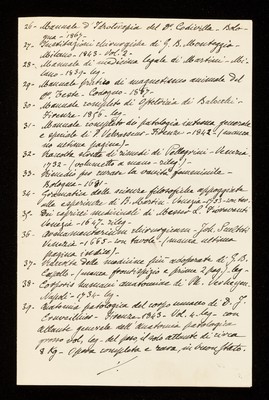 26- Manuale d'Idroterapia del Dr Codivilla- Bolo-
gna- 1867-
27- Instituzioni chirurgiche di G. B. Monteggia-
Milano- 1843- Vol. 2-
28- Manuale di medicina legale di Martini- Mi-
lano- 1839- leg-
29- Manuale pratico di magnetismo animale del
Dr Teste- Codogno- 1847-
30- Manuale completo di Ostetricia di
Firenze- 1856- leg-
31- Manuale completo di patologia interna generale
e speciale di Firenze- 1842- (manca
in nettuna pagina)-
32- Raccolta di rimedi di Pellegrini- Venezia
1732- (volumetto a mano- rileg)-
33- Rimedii per curare la vanità femminile-
Bologna- 1681-
34- Grammatica delle scienze filosofiche appoggiata
alle esperienze di B. Martin- Venezia- con tav.
35- Dei capricci medicinali di Messer L. Fioravanti
Venezia- 1647- rileg-
36- Armamentarium chirurgicum- Joh. Sculteti
Venezia- 1665- con tavole- (manca nettuna
pagina indice)-
37- delle medicine più adoperate di G. B.
Capello- (manca frontispizio e prime 2 pag) leg-
38- Corporis humani anatomia di Ph. Verheyen
Napoli- 1734- leg-
39- Anatomia patologica del corpo umano di D. J.
Cruveilhier- Firenze- 1843- Vol. 4- leg- con
atlante generale dell'Anatomia patologica
grosso vol, leg- del peso, il solo atlante di circa
8 Kg- (opera completa e rara, in buon stato-